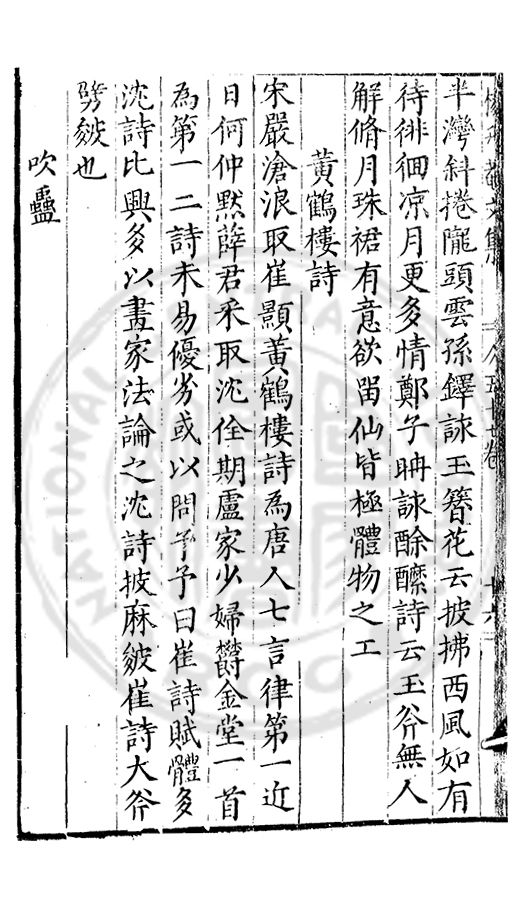 楊升菴文集 八五十七卷 十六
半灣斜捲隴頭雲孫鐸詠玉簪花云披拂西風如有
待徘徊凉月更多情鄭子聃詠酴醾詩云玉斧無人
解脩月珠裙有意欲留仙皆極體物之工
黃鶴樓詩
宋嚴滄浪取崔顥黃鶴樓詩為唐人七言律第一近
日何仲默薛君采取沈佺期盧家少婦欝金堂一首
為第一二詩未易優劣或以問予予曰崔詩賦體多
沈詩比興多以畫家法論之沈詩披麻皴崔詩大斧
劈皴也
吹蠱
NATIONAL